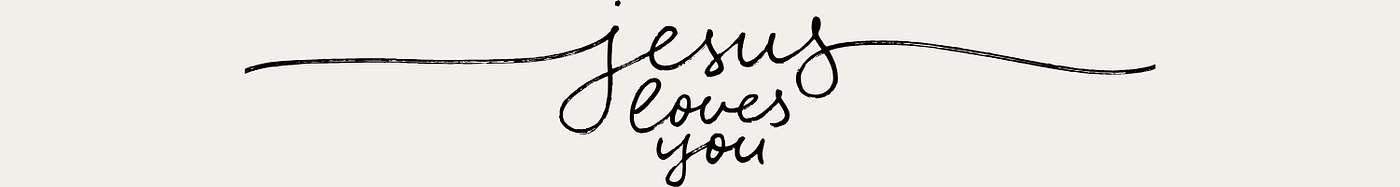 jesus
loves
you